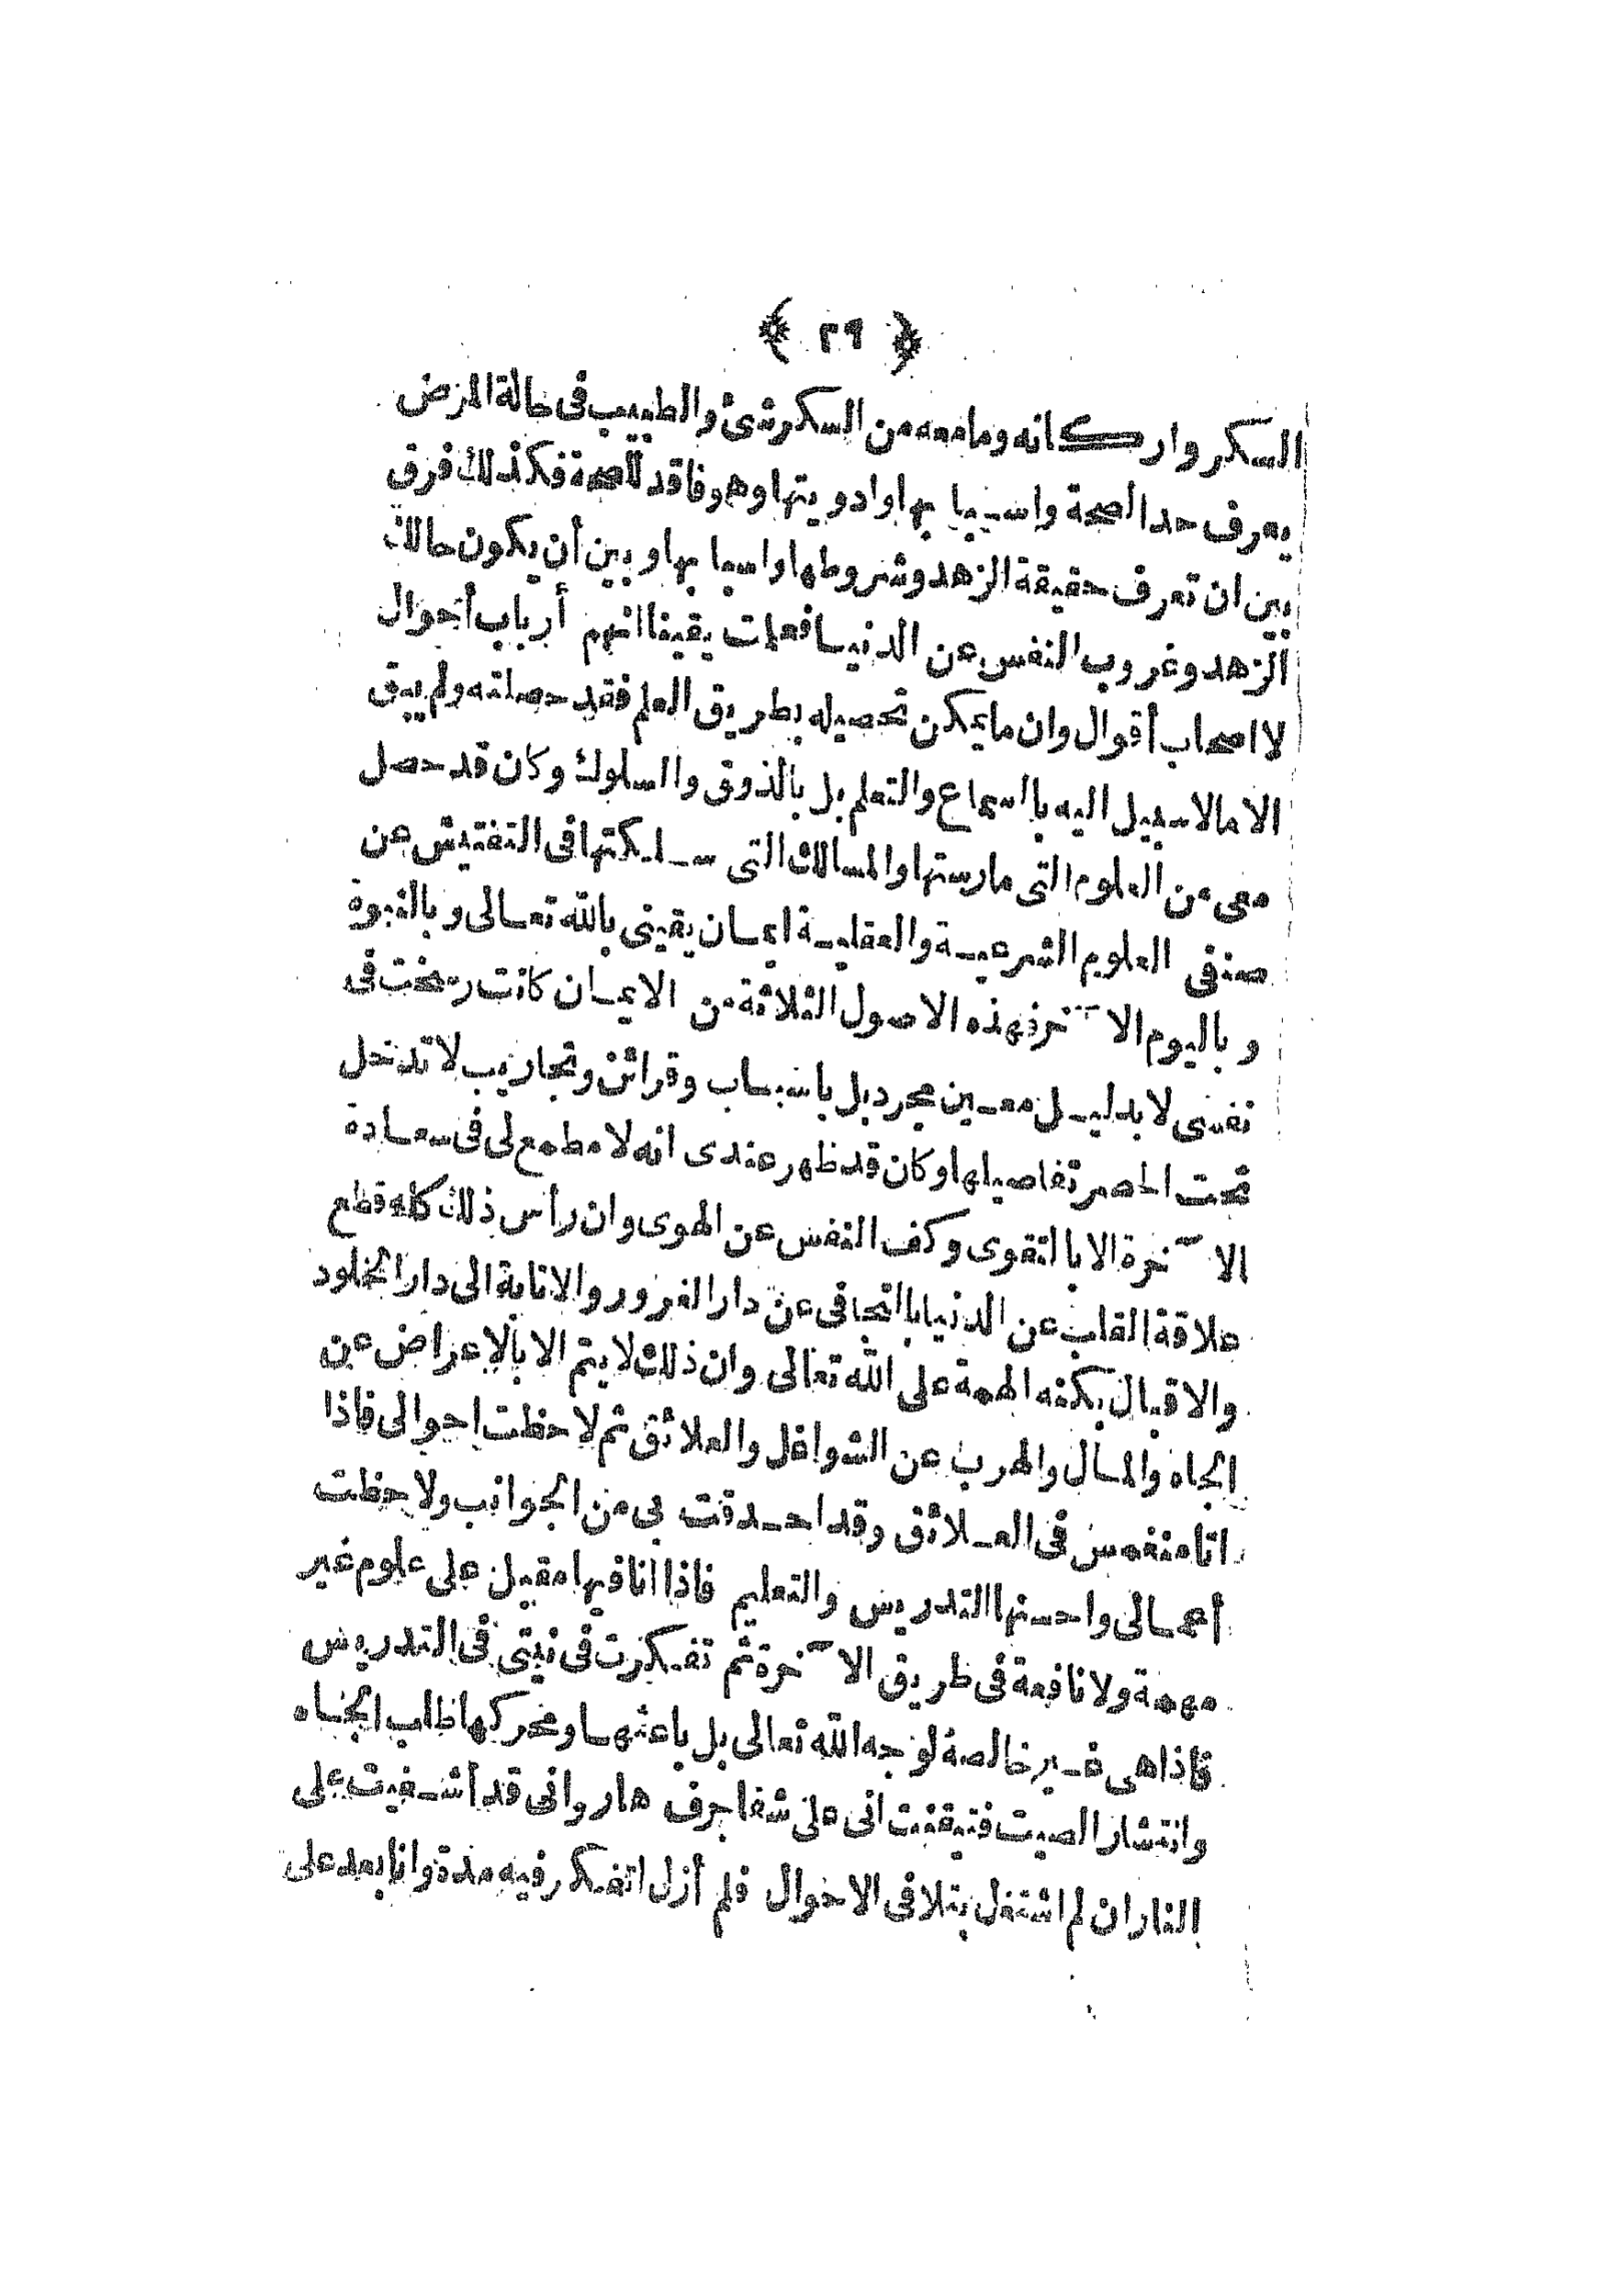 ﴿ ٢٩ ﴾
السكر واركانه وما معه من السكر شئ والطبيب فى حالة المرض
يعرف حد الصحة واسبابها وادويتها وهو فاقد للصحة فكذلك فرق
بين ان تعرف حقيقة الزهد وشروطها واسبابها و بين أن يكون حالك
الزهد وغروب النفس عن الدنيا فعلمت يقينا انهم أرباب أحوال
لا اصحاب أقوال وان ما يمكن تحصيله بطريق العلم فقد حصلته ولم يبق
الا مالا سبيل اليه بالسماع والتعلم بل بالذوق والسلوك وكان قد حصل
معى من العلوم التى مارستها والمسالك التى سلكتها فى التفتيش عن
صنفى العلوم الشرعية والعقلية ايمان يقينى بالله تعالى و بالنبوة
و باليوم الآخر فهذه الاصول الثلاثة من الايمان كانت رسخت فى
نفسى لا بدليل معين مجرد بل باسباب وقرائن وتجاريب لا تدخل
تحت الحصر تفاصيلها وكان قد ظهر عندى انه لا مطمع لى فى سعادة
الآخرة الا بالتقوى وكف النفس عن الهوى وان رأس ذلك كله قطع
علاقة القلب عن الدنيا بالتجافى عن دار الغرور والانابة الى دار الخلود
والاقبال بكنه الهمة على الله تعالى وان ذلك لا يتم الا بالاعراض عن
الجاه والمال والهرب عن الشواغل والعلائق ثم لاحظت احوالى فاذا
انا منغمس فى العلائق وقد احدقت بى من الجوانب ولاحظت
أعمالى واحسنها التدريس والتعليم فاذا انا فيها مقبل على علوم غير
مهمة ولا نافعة فى طريق الآخرة ثم تفكرت فى نيتى فى التدريس
فاذا هى غير خالصة لوجه الله تعالى بل باعثها ومحركها طلب الجاه
وانتشار الصيت فتيقنت انى على شفا جرف هار وانى قد أشفيت على
النار ان لم اشتغل بتلافى الاحوال فلم أزل اتفكر فيه مدة وانا بعد على